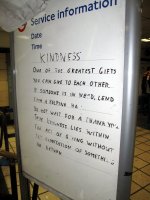 Service information
Date
Time
KINDNESS
ONE OF THE GREATEST GIFTS
YOU CAN GIVE TO EACH OTHER.
IF SOMEONE IS IN NEED, LEND
THEM A HELPING HAND.
DO NOT WAIT FOR A THANK YOU.
TRUE KINDNESS LIES WITHIN
THE ACT OF GIVING WITHOUT
THE EXPECTATION OF SOMETHING
IN RETURN